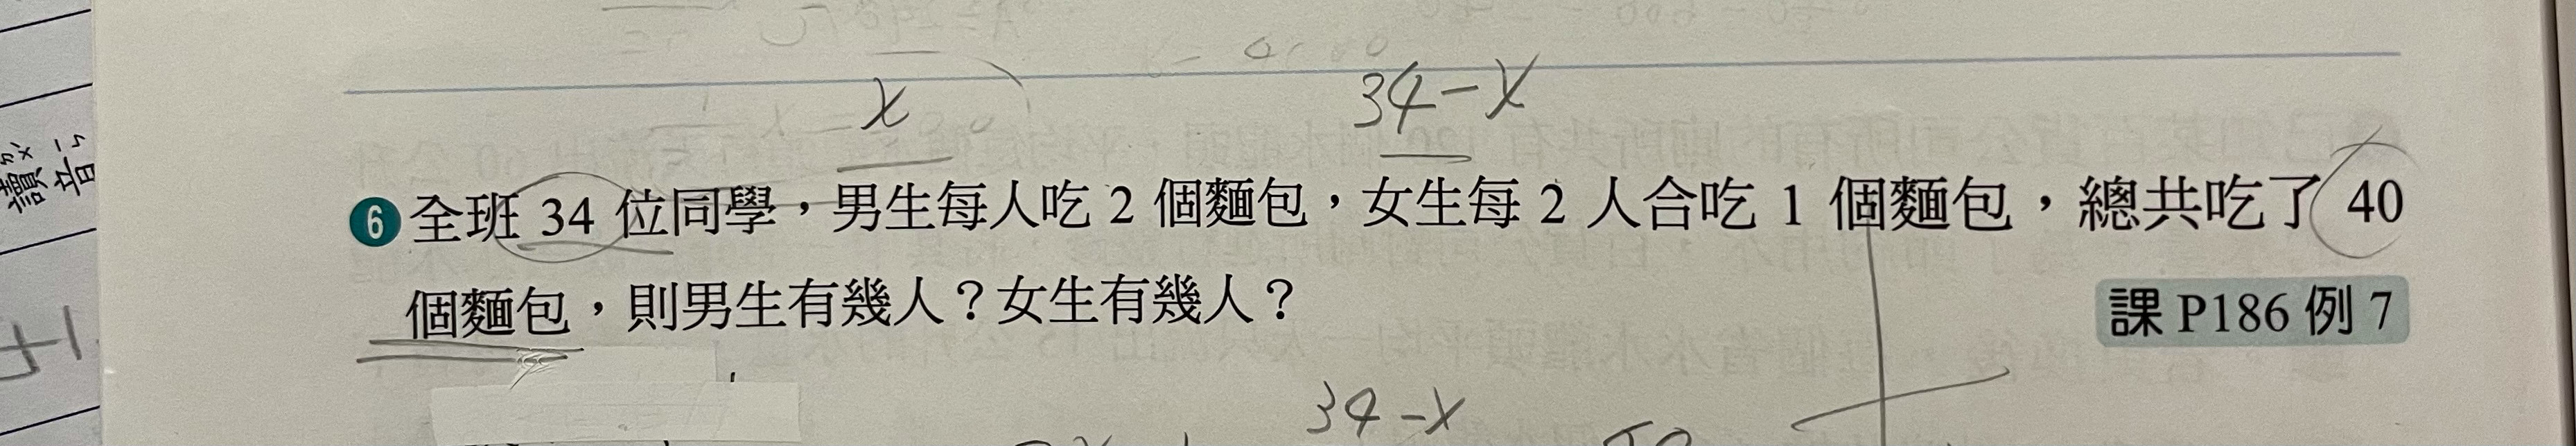 x 34-x
6 全班 34 位同學，男生每人吃 2 個麵包，女生每 2 人合吃 1 個麵包，總共吃了 40
個麵包，則男生有幾人？女生有幾人？
課 P186 例 7
34-x
讀音